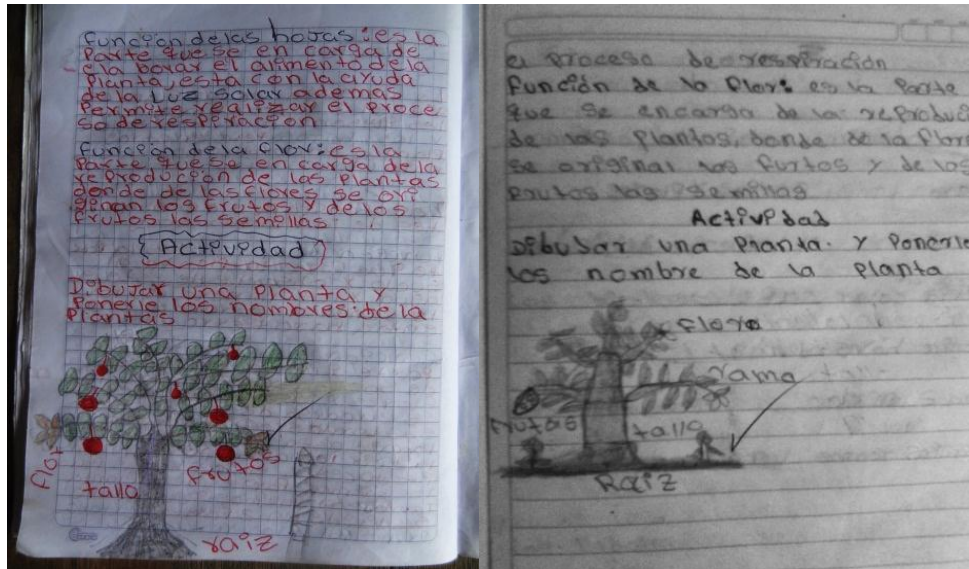 Función de las hojas: es la
Parte que se en carga de
ela borar el alimento dela
Planta, esta con la ayuda
de la Luz Solar ademas
Permite realizar el Proce
so de respiración
función dela flor: es la
Parte que se en carga de la
reproducion de las Plantas
donde de las flores se ori
ginan los frutos y de los
frutos las semillas
Actividad
Dibujar una Planta y
Ponerle los nombres de la
Plantas
flor
talla
frutos
raiz
el Proceso de respiración
función de la flor: es la Parte
que se encarga de la reproduc
de las Plantas, donde de la flore
se originan los furtos y de los
frutos las semillas
Actividad
Dibujar una Planta. Y Ponerle
los nombre de la Planta
flore
rama
frutas
tallo
Raiz